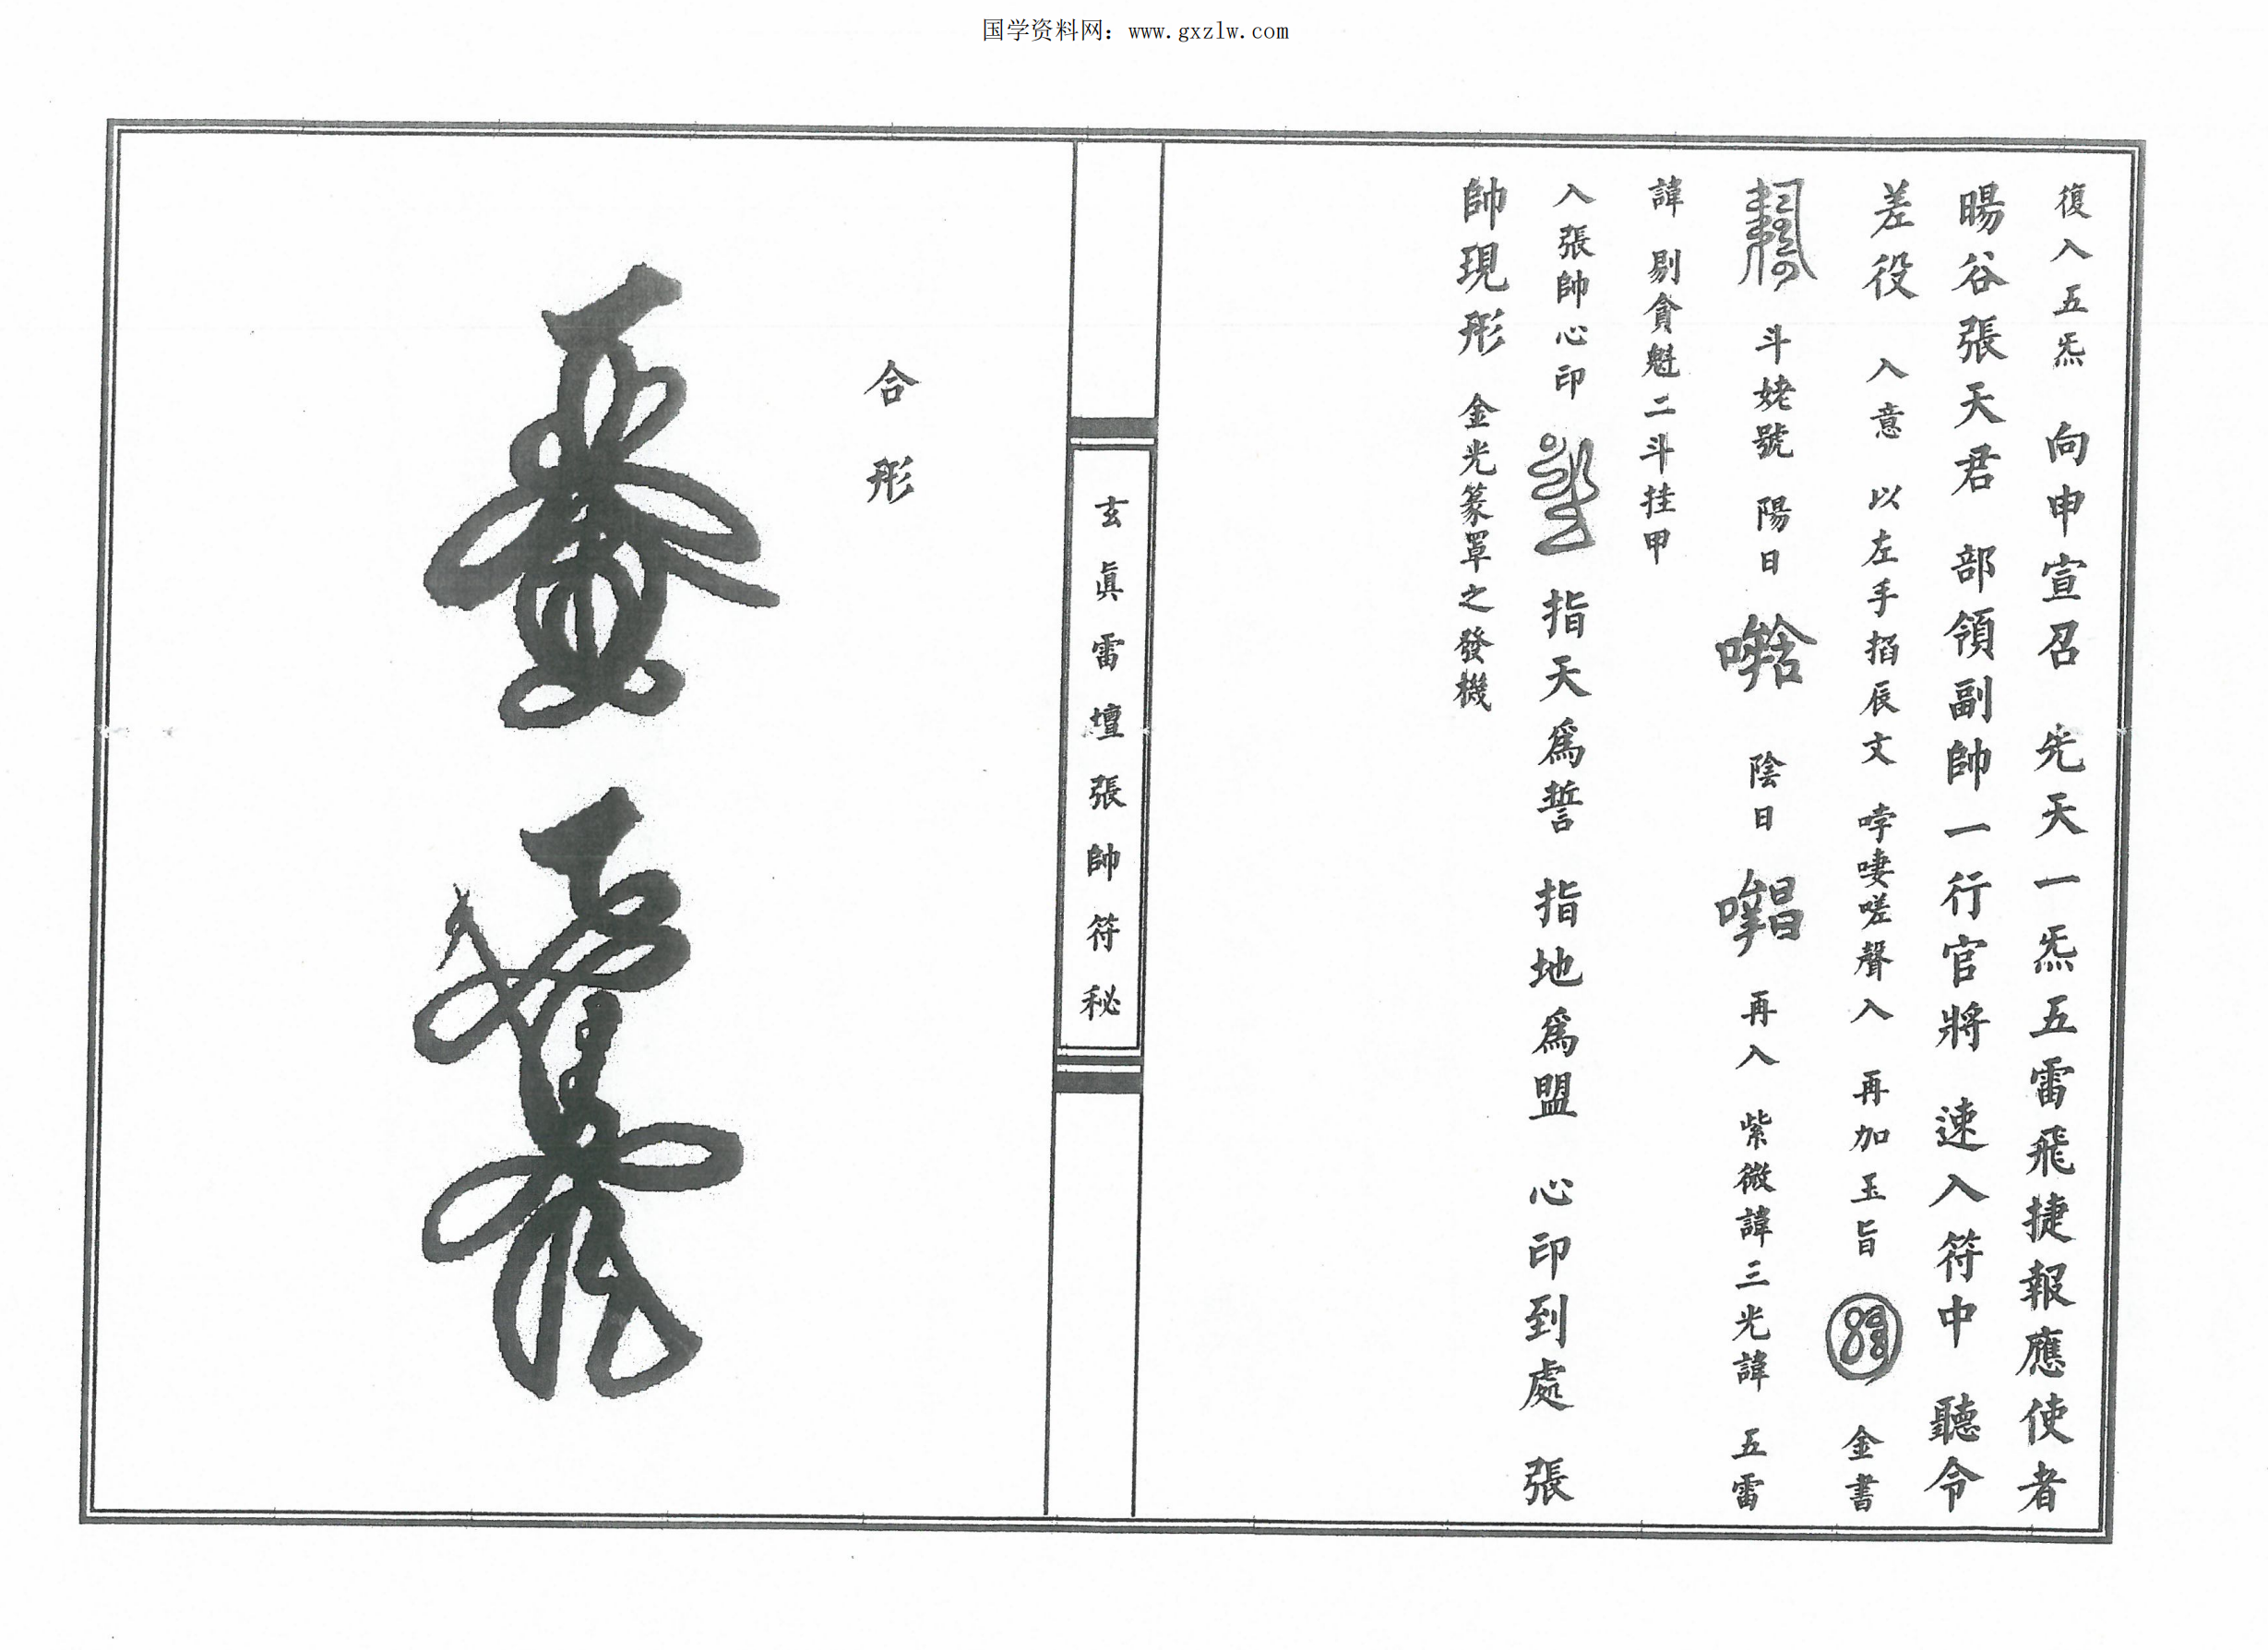 国学资料网：www.gxzlw.com
復入五炁 向申宣召 先天一炁五雷飛捷報應使者
暘谷張天君 部領副帥一行官將 速入符中 聽令
差役 入意 以左手掐辰文 哱嘍嗟聲入 再加玉旨 金書
斗姥號 陽日 陰日 再入 紫微諱三光諱 五雷
諱 剔貪魁二斗挂甲
入張帥心印 指天爲誓 指地爲盟 心印到處 張
帥現形 金光篆罩之發機
玄眞雷壇張帥符秘
合形